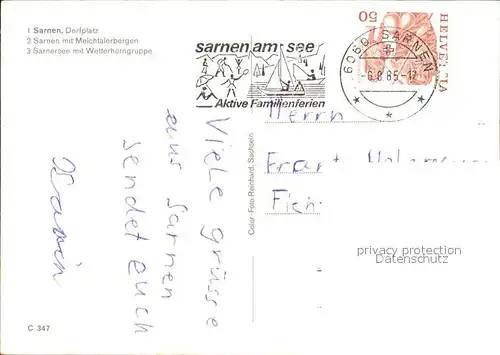 1 Sarnen, Dorfplatz
2 Sarnen mit Melchtalerbergen
3 Sarnersee mit Wetterhorngruppe
sarnen am see
Aktive Familienferien
6060 SARNEN
-6.8.85-17
50
HELVETIA
Viele grüsse
aus Sarnen
sendet euch
Herrn
Frant
Color-Foto Reinhard, Sachseln
privacy protection
Datenschutz
C 347